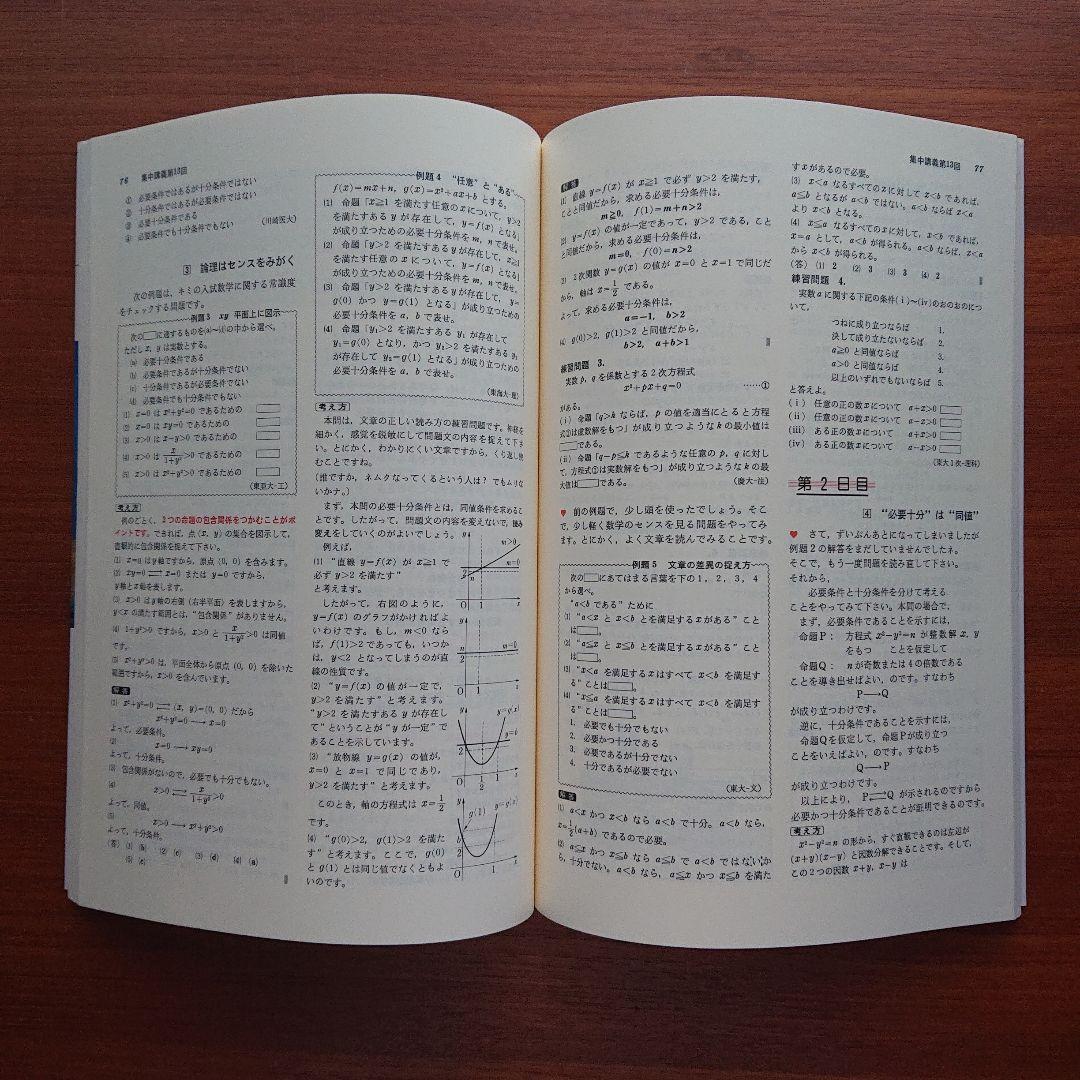 76 集中講義第13回
① 必要条件ではあるが十分条件ではない
② 十分条件ではあるが必要条件ではない
③ 必要十分条件である
④ 必要条件でも十分条件でもない (川崎医大)
3 論理はセンスをみがく
次の例題は、キミの入試数学に関する常識度
をチェックする問題です。
例題3 xy 平面上に図示
次の□に適するものを(a)~(d)の中から選べ。
ただし x, y は実数とする。
(a) 必要十分条件である
(b) 必要条件であるが十分条件でない
(c) 十分条件であるが必要条件でない
(d) 必要条件でも十分条件でもない
(1) x=0 は x²+y²=0 であるための □
(2) x=0 は xy=0 であるための □
(3) x>0 は x-y>0 であるための □
(4) x>0 は x/(1+y²)>0 であるための □
(5) x>0 は x²+y²>0 であるための □
(東亜大-工)
考え方
例のごとく、2つの命題の包含関係をつかむことがポ
イントです。できれば、点(x, y)の集合を図示して、
直観的に包含関係を捉えて下さい。
(1) x=0 は y軸ですから、原点 (0, 0) を含みます。
(2) xy=0 ⇄ x=0 または y=0 ですから、
y軸と x軸を表します。
(3) x>0 は y軸の右側(右半平面)を表しますから、
y<x の満たす範囲とは、“包含関係”がありません。
(4) 1+y²>0 ですから、x>0 と x/(1+y²)>0 は同値
です。
(5) x²+y²>0 は、平面全体から原点 (0, 0) を除いた
範囲ですから、x>0 を含んでいます。
解答
(1) x²+y²=0 ⇄ (x, y)=(0, 0) だから
x²+y²=0 → x=0
よって、必要条件。
(2) x=0 → xy=0
よって、十分条件。
(3) 包含関係がないので、必要でも十分でもない。
(4) x>0 ⇄ x/(1+y²)>0
よって、同値。
(5) x>0 → x²+y²>0
よって、十分条件。
(答) (1) (b) (2) (c) (3) (d) (4) (a)
(5) (c)
例題4 “任意”と“ある”
f(x)=mx+n, g(x)=x²+ax+b とする。
(1) 命題「x≧1 を満たす任意のxについて、y>2
を満たすある y が存在して、y=f(x) となる」
が成り立つための必要十分条件を m, n で表せ。
(2) 命題「y>2 を満たすある y が存在して、x≧1
を満たす任意の x について、y=f(x) となる」
が成り立つための必要十分条件を m, n で表せ。
(3) 命題「y>2 を満たすある y が存在して、y=
g(0) かつ y=g(1) となる」が成り立つための
必要十分条件を a, b で表せ。
(4) 命題「y₁>2 を満たすある y₁ が存在して
y₁=g(0) となり、かつ y₂>2 を満たすある y₂
が存在して y₂=g(1) となる」が成り立つための
必要十分条件を a, b で表せ。
(東海大-理)
考え方
本問は、文章の正しい読み方の練習問題です。神経を
細かく、感覚を鋭敏にして問題文の内容を捉えて下さ
い。とにかく、わかりにくい文章ですから、くり返し読
むことですね。
(誰ですか、ネムクなってくるという人は? でもムリな
いかナ。)
まず、本問の必要十分条件とは、同値条件を求めるこ
とです。したがって、問題文の内容を変えないで、読み
変えをしていくのがよいでしょう。
例えば、
(1) “直線 y=f(x) が x≧1 で
必ず y>2 を満たす”
と考えます。
したがって、右図のように、
y=f(x) のグラフがかければよ
いわけです。もし、m<0 なら
ば、f(1)>2 であっても、いつか
は、y<2 となってしまうのが直
線の性質です。
(2) “y=f(x) の値が一定で、
y>2 を満たす”と考えます。
“y>2 を満たすある y が存在し
て”ということが“y が一定”で
あることを示しています。
(3) “放物線 y=g(x) の値が、
x=0 と x=1 で同じであり、
y>2 を満たす”と考えます。
このとき、軸の方程式は x=1/2
です。
(4) “g(0)>2, g(1)>2 を満た
す”と考えます。ここで、g(0)
と g(1) とは同じ値でなくともよ
いのです。
集中講義第13回 77
解答
(1) 直線 y=f(x) が x≧1 で必ず y>2 を満たす、
ことと同値だから、求める必要十分条件は、
m≧0, f(1)=m+n>2
(2) y=f(x) の値が一定であって、y>2 である、こと
と同値だから、求める必要十分条件は、
m=0, f(0)=n>2
(3) 2次関数 y=g(x) の値が x=0 と x=1 で同じだ
から、軸は x=1/2 である。
よって、求める必要十分条件は、
a=-1, b>2
(4) g(0)>2, g(1)>2 と同値だから、
b>2, a+b>1
練習問題 3.
実数 p, q を係数とする2次方程式
x²+px+q=0 ……①
がある。
(i) 命題「q>k ならば、p の値を適当にとると方程
式①は虚数解をもつ」が成り立つような k の最小値は
□である。
(ii) 命題「q-p≦k であるような任意の p, q に対し
て、方程式①は実数解をもつ」が成り立つような k の最
大値は□である。 (慶大-法)
♥ 前の例題で、少し頭を使ったでしょう。そこ
で、少し軽く数学のセンスを見る問題をやってみ
ます。とにかく、よく文章を読んでみることです。
例題5 文章の差異の捉え方
次の□にあてはまる言葉を下の 1, 2, 3, 4
から選べ。
“a<b である”ために
(1) “a<x と x<b とを満足する x がある”こと
は□。
(2) “a≦x と x≦b とを満足する x がある”こと
は□。
(3) “x<a を満足する x はすべて x<b を満足す
る”ことは□。
(4) “x≦a を満足する x はすべて x<b を満足す
る”ことは□。
1. 必要でも十分でもない
2. 必要かつ十分である
3. 必要であるが十分でない
4. 十分であるが必要でない
(東大-文)
解答
(1) a<x かつ x<b なら a<b で十分。a<b なら、
x=1/2(a+b) であるので必要。
(2) a≦x かつ x≦b なら a≦b で a<b ではないか
ら、十分でない。a<b なら、a≦x かつ x≦b を満た
す x があるので必要。
(3) x<a なるすべての x に対して x<b であれば、
a≦b となるが a<b ではない。a<b ならば x<a
より x<b となる。
(4) x≦a なるすべての x に対して、x<b であれば、
x=a として、a<b が得られる。a<b ならば、x≦a
から x<b が得られる。
(答) (1) 2 (2) 3 (3) 3 (4) 2
練習問題 4.
実数 a に関する下記の条件(i)~(iv)のおのおのにつ
いて、
つねに成り立つならば 1.
決して成り立たないならば 2.
a≧0 と同値ならば 3.
a>0 と同値ならば 4.
以上のいずれでもないならば 5.
と答えよ。
(i) 任意の正の数 x について a+x>0 □
(ii) 任意の正の数 x について a-x>0 □
(iii) ある正の数 x について a+x>0 □
(iv) ある正の数 x について a-x>0 □
(東大1次-理科)
第2日目
4 “必要十分”は“同値”
♥ さて、ずいぶんあとになってしまいましたが
例題2の解答をまだしていませんでしたネ。
そこで、もう一度問題を読み直して下さい。
それから、
必要条件と十分条件を分けて考える
ことをやってみて下さい。本問の場合で、
まず、必要条件であることを示すには、
命題P: 方程式 x²-y²=n が整数解 x, y
をもつ ことを仮定して
命題Q: n が奇数または4の倍数である
ことを導き出せばよい、のです。すなわち
P→Q
が成り立つわけです。
逆に、十分条件であることを示すには、
命題Qを仮定して、命題Pが成り立つ
ことをいえばよい、のです。すなわち
Q→P
が成り立つわけです。
以上により、P⇄Q が示されるのですから
必要かつ十分条件であることが証明できるのです。
考え方
x²-y²=n の形から、すぐ直観できるのは左辺が
(x+y)(x-y) と因数分解できることです。そして、
この2つの因数 x+y, x-y は